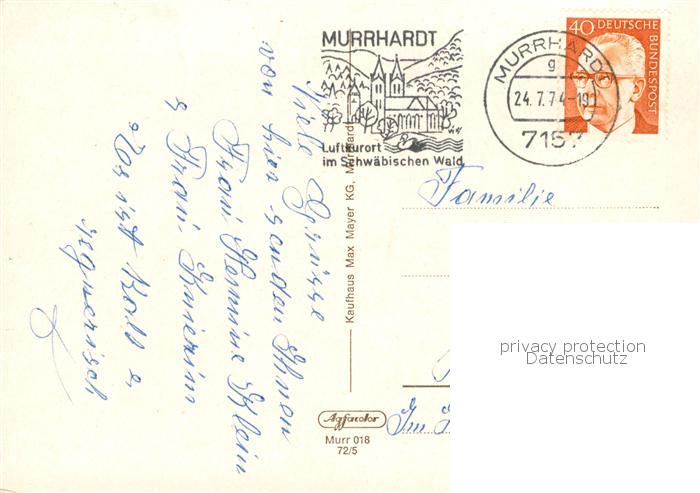 MURRHARDT
Luftkurort
im Schwäbischen Wald
MURRHARDT
g
24.7.74-19
7157
40 DEUTSCHE
BUNDESPOST
Viele Grüsse
von hier senden Ihnen
Frau Hermine Klein
& Frau Knierim
Hos ist kalt &
regnerisch
Kaufhaus Max Mayer KG, Murrhardt
Familie
Im
Agfacolor
Murr 018
72/5
privacy protection
Datenschutz